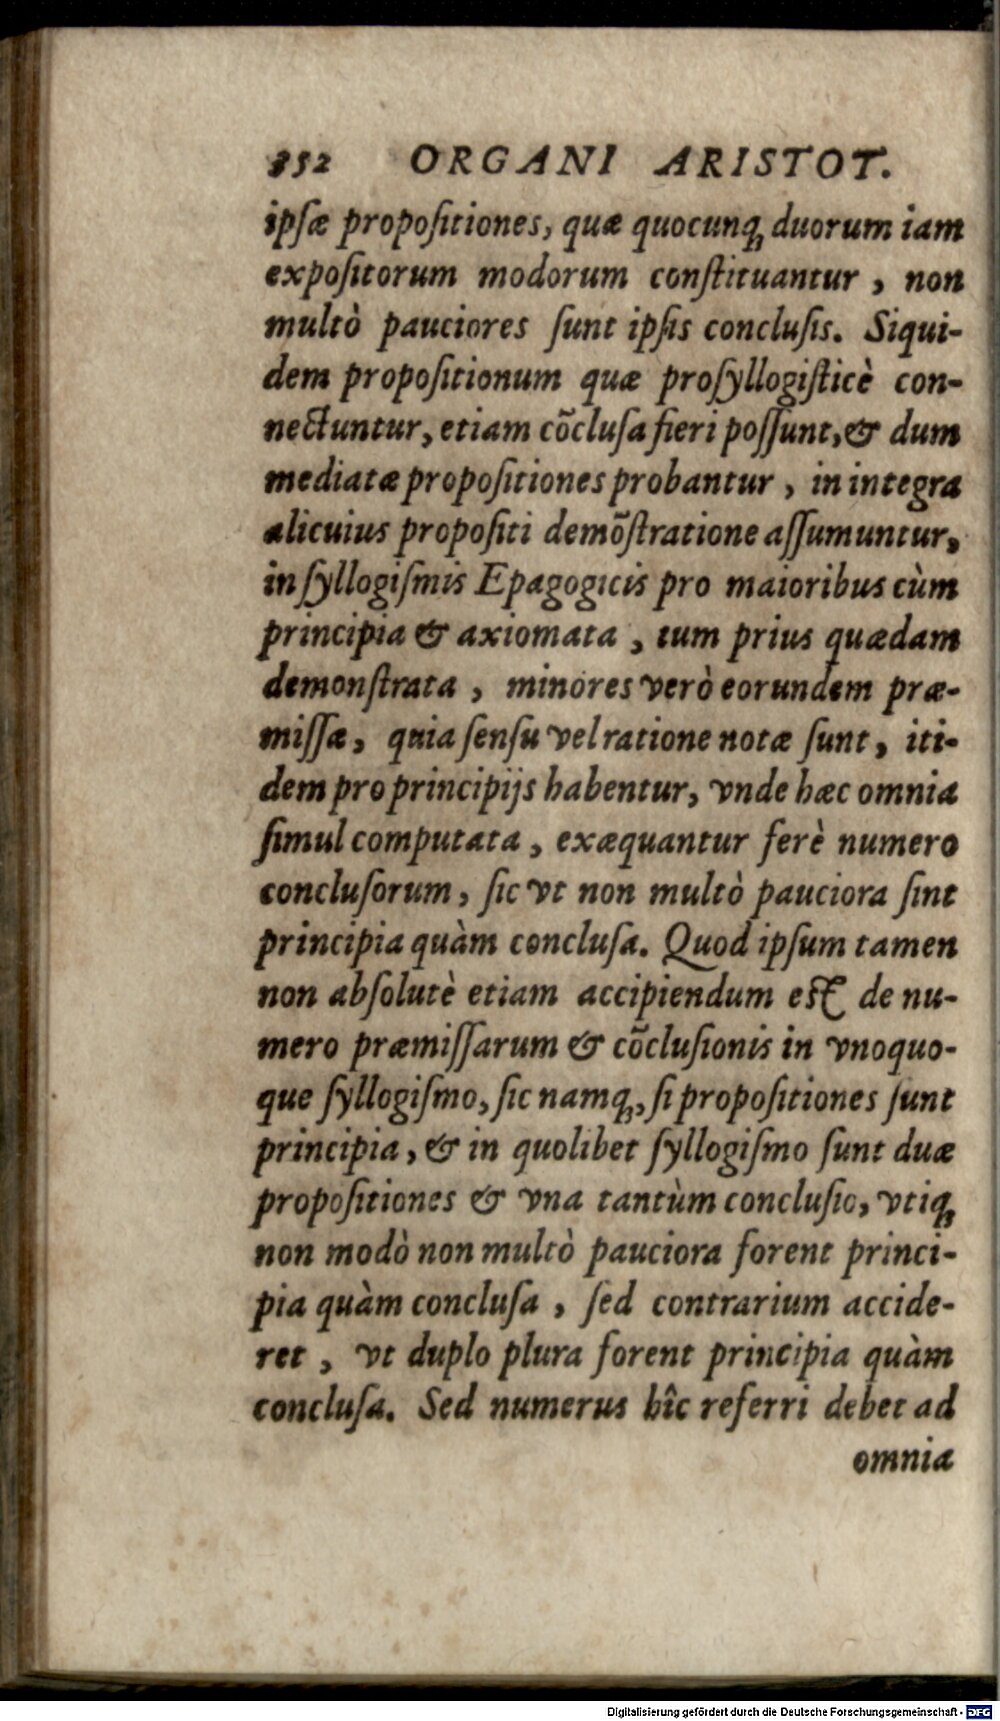 352 ORGANI ARISTOT.
ipſæ propoſitiones, quæ quocunq́; duorum iam
expoſitorum modorum conſtituantur, non
multò pauciores ſunt ipſis concluſis. Siqui-
dem propoſitionum quæ proſyllogiſticè con-
nectuntur, etiam cõcluſa fieri poſſunt, & dum
mediatæ propoſitiones probantur, in integra
alicuius propoſiti demõſtratione aſſumuntur,
in ſyllogiſmis Epagogicis pro maioribus cùm
principia & axiomata, tum prius quædam
demonſtrata, minores verò eorundem præ-
miſſæ, quia ſenſu vel ratione notæ ſunt, iti-
dem pro principijs habentur, vnde hæc omnia
ſimul computata, exæquantur ferè numero
concluſorum, ſic vt non multò pauciora ſint
principia quàm concluſa. Quod ipſum tamen
non abſolutè etiam accipiendum eſt de nu-
mero præmiſſarum & cõcluſionis in vnoquo-
que ſyllogiſmo, ſic namq́;, ſi propoſitiones ſunt
principia, & in quolibet ſyllogiſmo ſunt duæ
propoſitiones & vna tantùm concluſio, vtiq́;
non modò non multò pauciora forent princi-
pia quàm concluſa, ſed contrarium accide-
ret, vt duplo plura forent principia quàm
concluſa. Sed numerus hîc referri debet ad
omnia
Digitalisierung gefördert durch die Deutsche Forschungsgemeinschaft - DFG